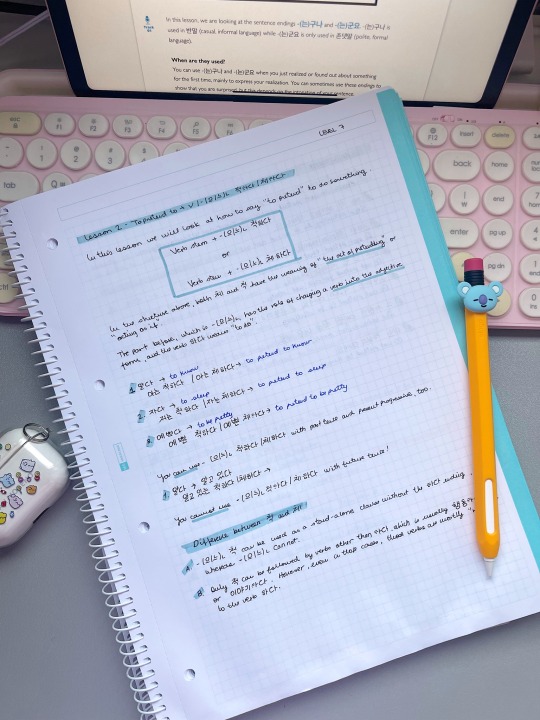 In this lesson, we are looking at the sentence endings -(는)구나 and -(는)군요. -(는)구나 is
used in 반말 (casual, informal language) while -(는)군요 is only used in 존댓말 (polite, formal
language).
When are they used?
You can use -(는)구나 and -(는)군요 when you just realized or found out about something
for the first time, mainly to express your realization. You can sometimes use these endings to
show that you are surprised, but this depends on the intonation of your sentence.
LEVEL 7
Lesson 2 - To pretend to + V | -(으)ㄴ 척하다 / 체하다
In this lesson we will look at how to say "to pretend" to do something.
Verb stem + -(으)ㄴ 척하다
or
Verb stem + -(으)ㄴ 체하다
In the structure above, both 척 and 체 have the meaning of "the act of pretending" or
"acting as if".
The part before, which is -(으)ㄴ, has the role of changing a verb into the adjective
form, and the verb 하다 means "to do".
1. 알다 → to know
아는 척하다 / 아는 체하다 → to pretend to know
2. 자다 → to sleep
자는 척하다 / 자는 체하다 → to pretend to sleep
3. 예쁘다 → to be pretty
예쁜 척하다 / 예쁜 체하다 → to pretend to be pretty
You can use -(으)ㄴ 척하다/체하다 with past tense and present progressive, too.
1. 알다 → 알고 있다
알고 있는 척하다/체하다 →
You cannot use -(으)ㄴ 척하다 / 체하다 with future tense!
Difference between 척 and 체:
-(으)ㄴ 척 can be used as a stand-alone clause without the 하다 ending,
whereas -(으)ㄴ cannot.
Only 척 can be followed by verbs other than 하다, which is usually 행동
or 이야기하다. However, even in these cases, these verbs are mostly
to the verb 하다.
esc
F1
F2
F3
F4
F5
F6
F12
insert
delete
1
2
3
4
tab
Q
back
home
end
enter
pg up
pg dn